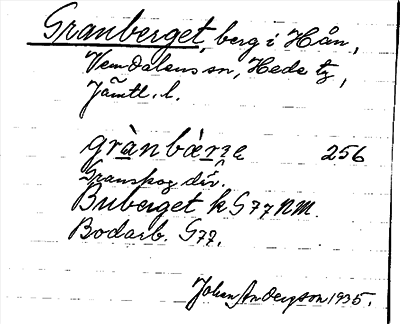 Granberget, berg i Hån,
Vemdalens sn, Hede tg,
Jämtl. l.
grànbær̀ɜe 256
Granskog div.
Buberget k G77 NM.
Bodarb. G77.
Johan Anderson 1935.